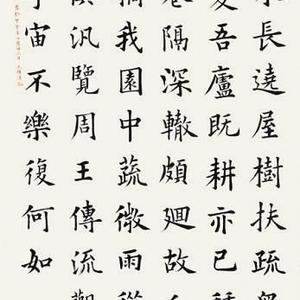 木長遶屋樹扶疏眾
愛吾廬既耕亦已種
巷隔深轍頗迴故人
摘我園中蔬微雨從
俱汎覽周王傳流觀
宇宙不樂復何如